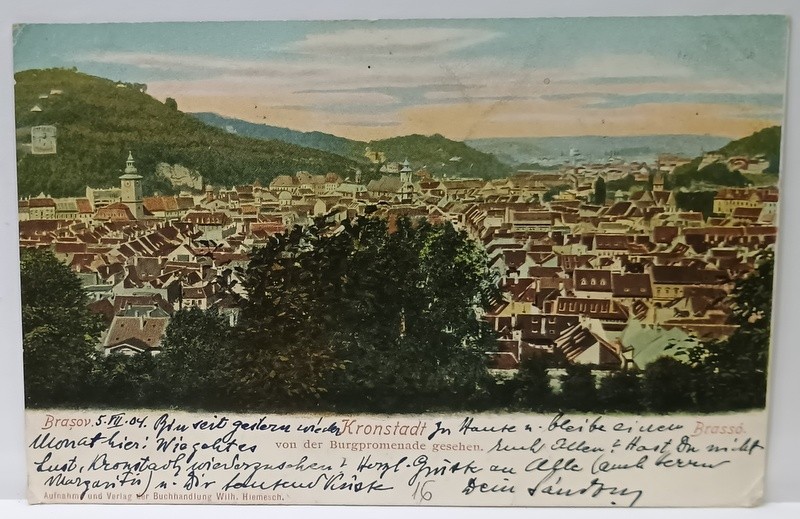 Brașov. 5. VII. 04. Bin seit gestern wieder Kronstadt zu Hause u. bleibe einen Brassó.
Monat hier! Wie geht es von der Burgpromenade gesehen. Euch Allen? Hast Du nicht
Lust, Kronstadt wiederzusehen? Herzl. Grüße an Alle (auch Herrn
Margaritu) u. Dir tausend Küsse
Aufnahme und Verlag der Buchhandlung Wilh. Hiemesch. 16 Dein Sándor